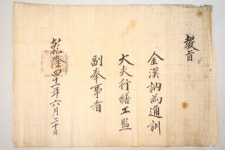 敎旨
金漢訥爲通訓
大夫行繕工監
副奉事者
乾隆四十一年六月二十日